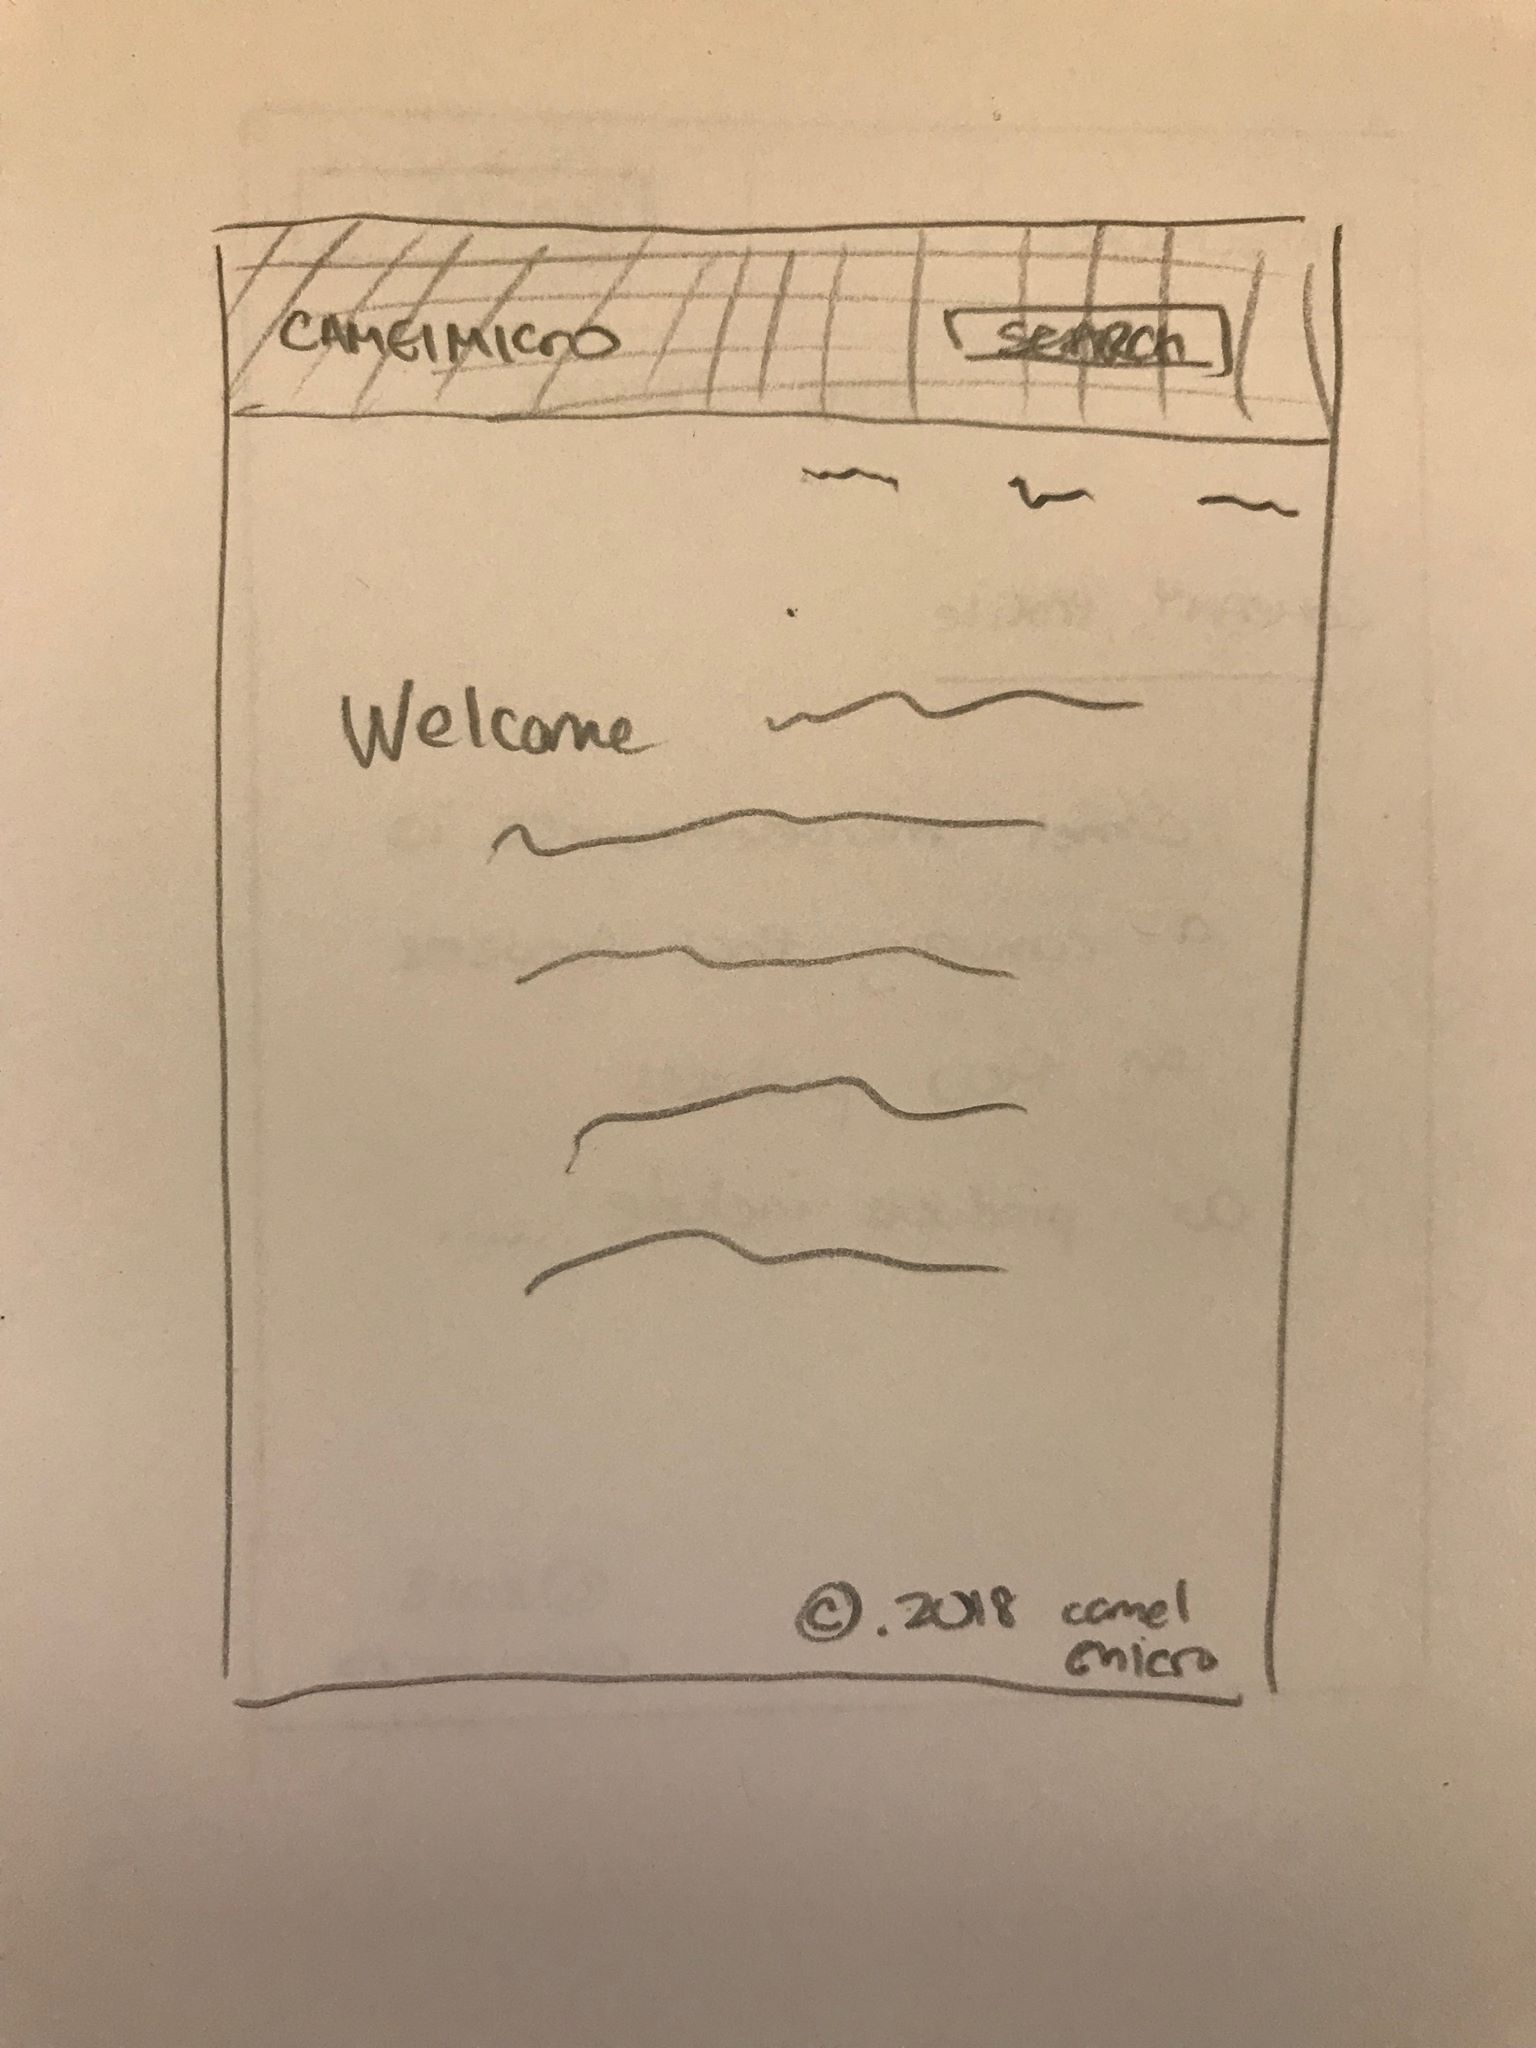 CAMElMICRO
SEARCH
Welcome
©.2018 camel
micro